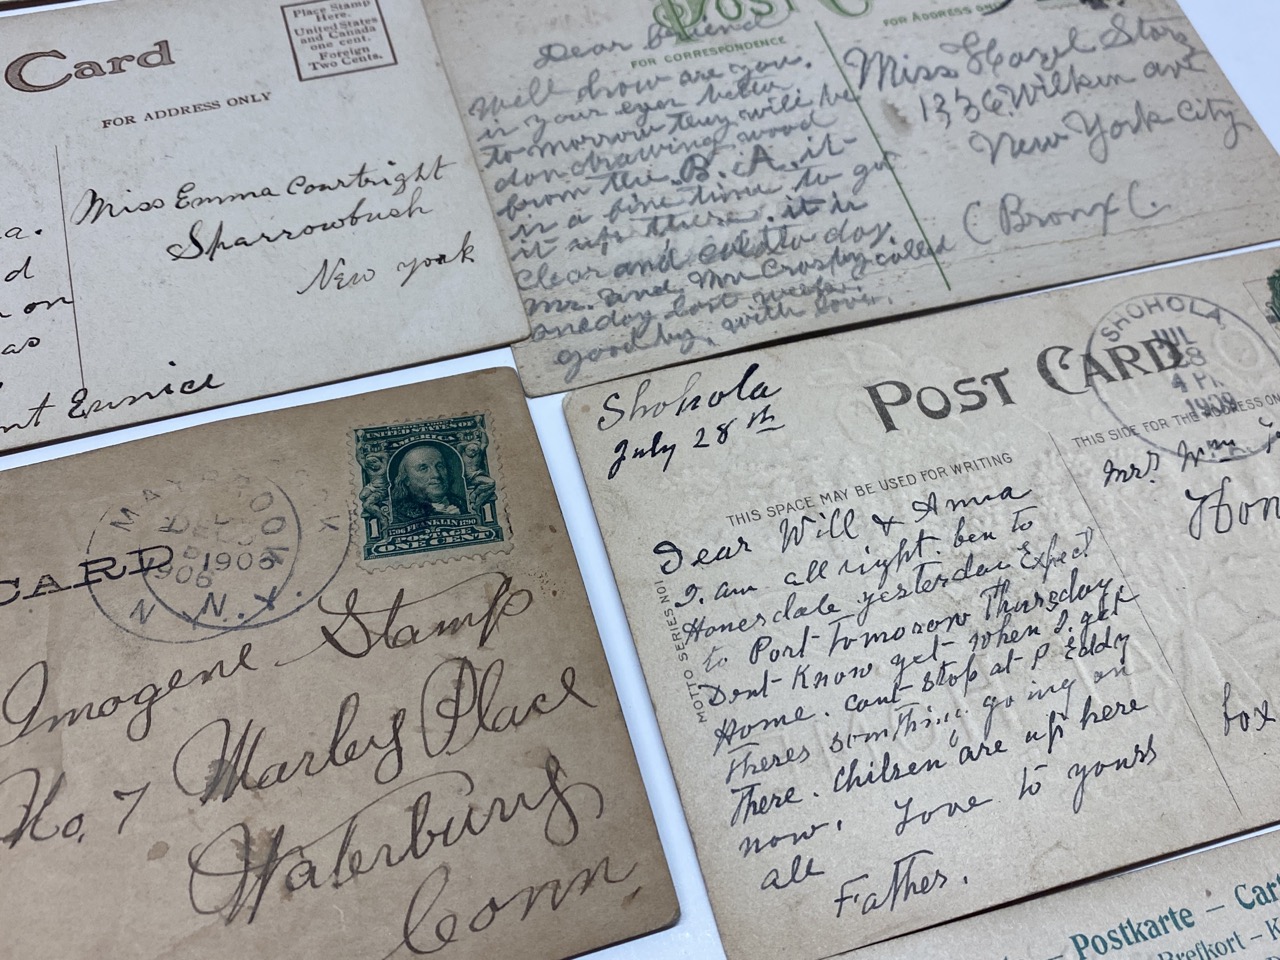 Card
Place Stamp
Here.
United States
and Canada
one cent.
Foreign
Two Cents.
FOR ADDRESS ONLY
Miss Emma Courtright
Sparrowbush
New york
a.
d
on
as
nt Eunice
POST C
FOR CORRESPONDENCE
FOR ADDRESS ON
Dear friend
Well how are you.
is your eyes better
to morrow they will be
don drawing wood
from the B. A. it
is a fine time to get
it up there. it is
Clear and cold to day.
Mr. and Mr Crosby called
oneday last week.
good by. with love.
Miss Hazel Storz
1336 Wilkin ave
New York City
(Bronx).
CARD
MAYBROOK
DEC
1906
N.Y.
UNITED STATES OF
AMERICA
1706 FRANKLIN 1790
1 POSTAGE 1
ONE CENT
Imogene Stamp.
No. 7 Marley Place
Waterbury
Conn.
POST CARD
SHOHOLA
JUL
28
4 PM
1909
THIS SPACE MAY BE USED FOR WRITING
THIS SIDE FOR THE ADDRESS ON
MOTTO SERIES NO1
Shohola
July 28th
Dear Will & Anna
I. am all right. ben to
Honesdale yesterday Expect
to Port tomorow Thursday.
Dont Know yet when I. get
Home. cant stop at P. Eddy
Theres somthing going on
There. Chilsen are up here
now. Love to yours
all
Father.
Mrs Wm
Hon
box
Postkarte – Cart
Brefkort – K